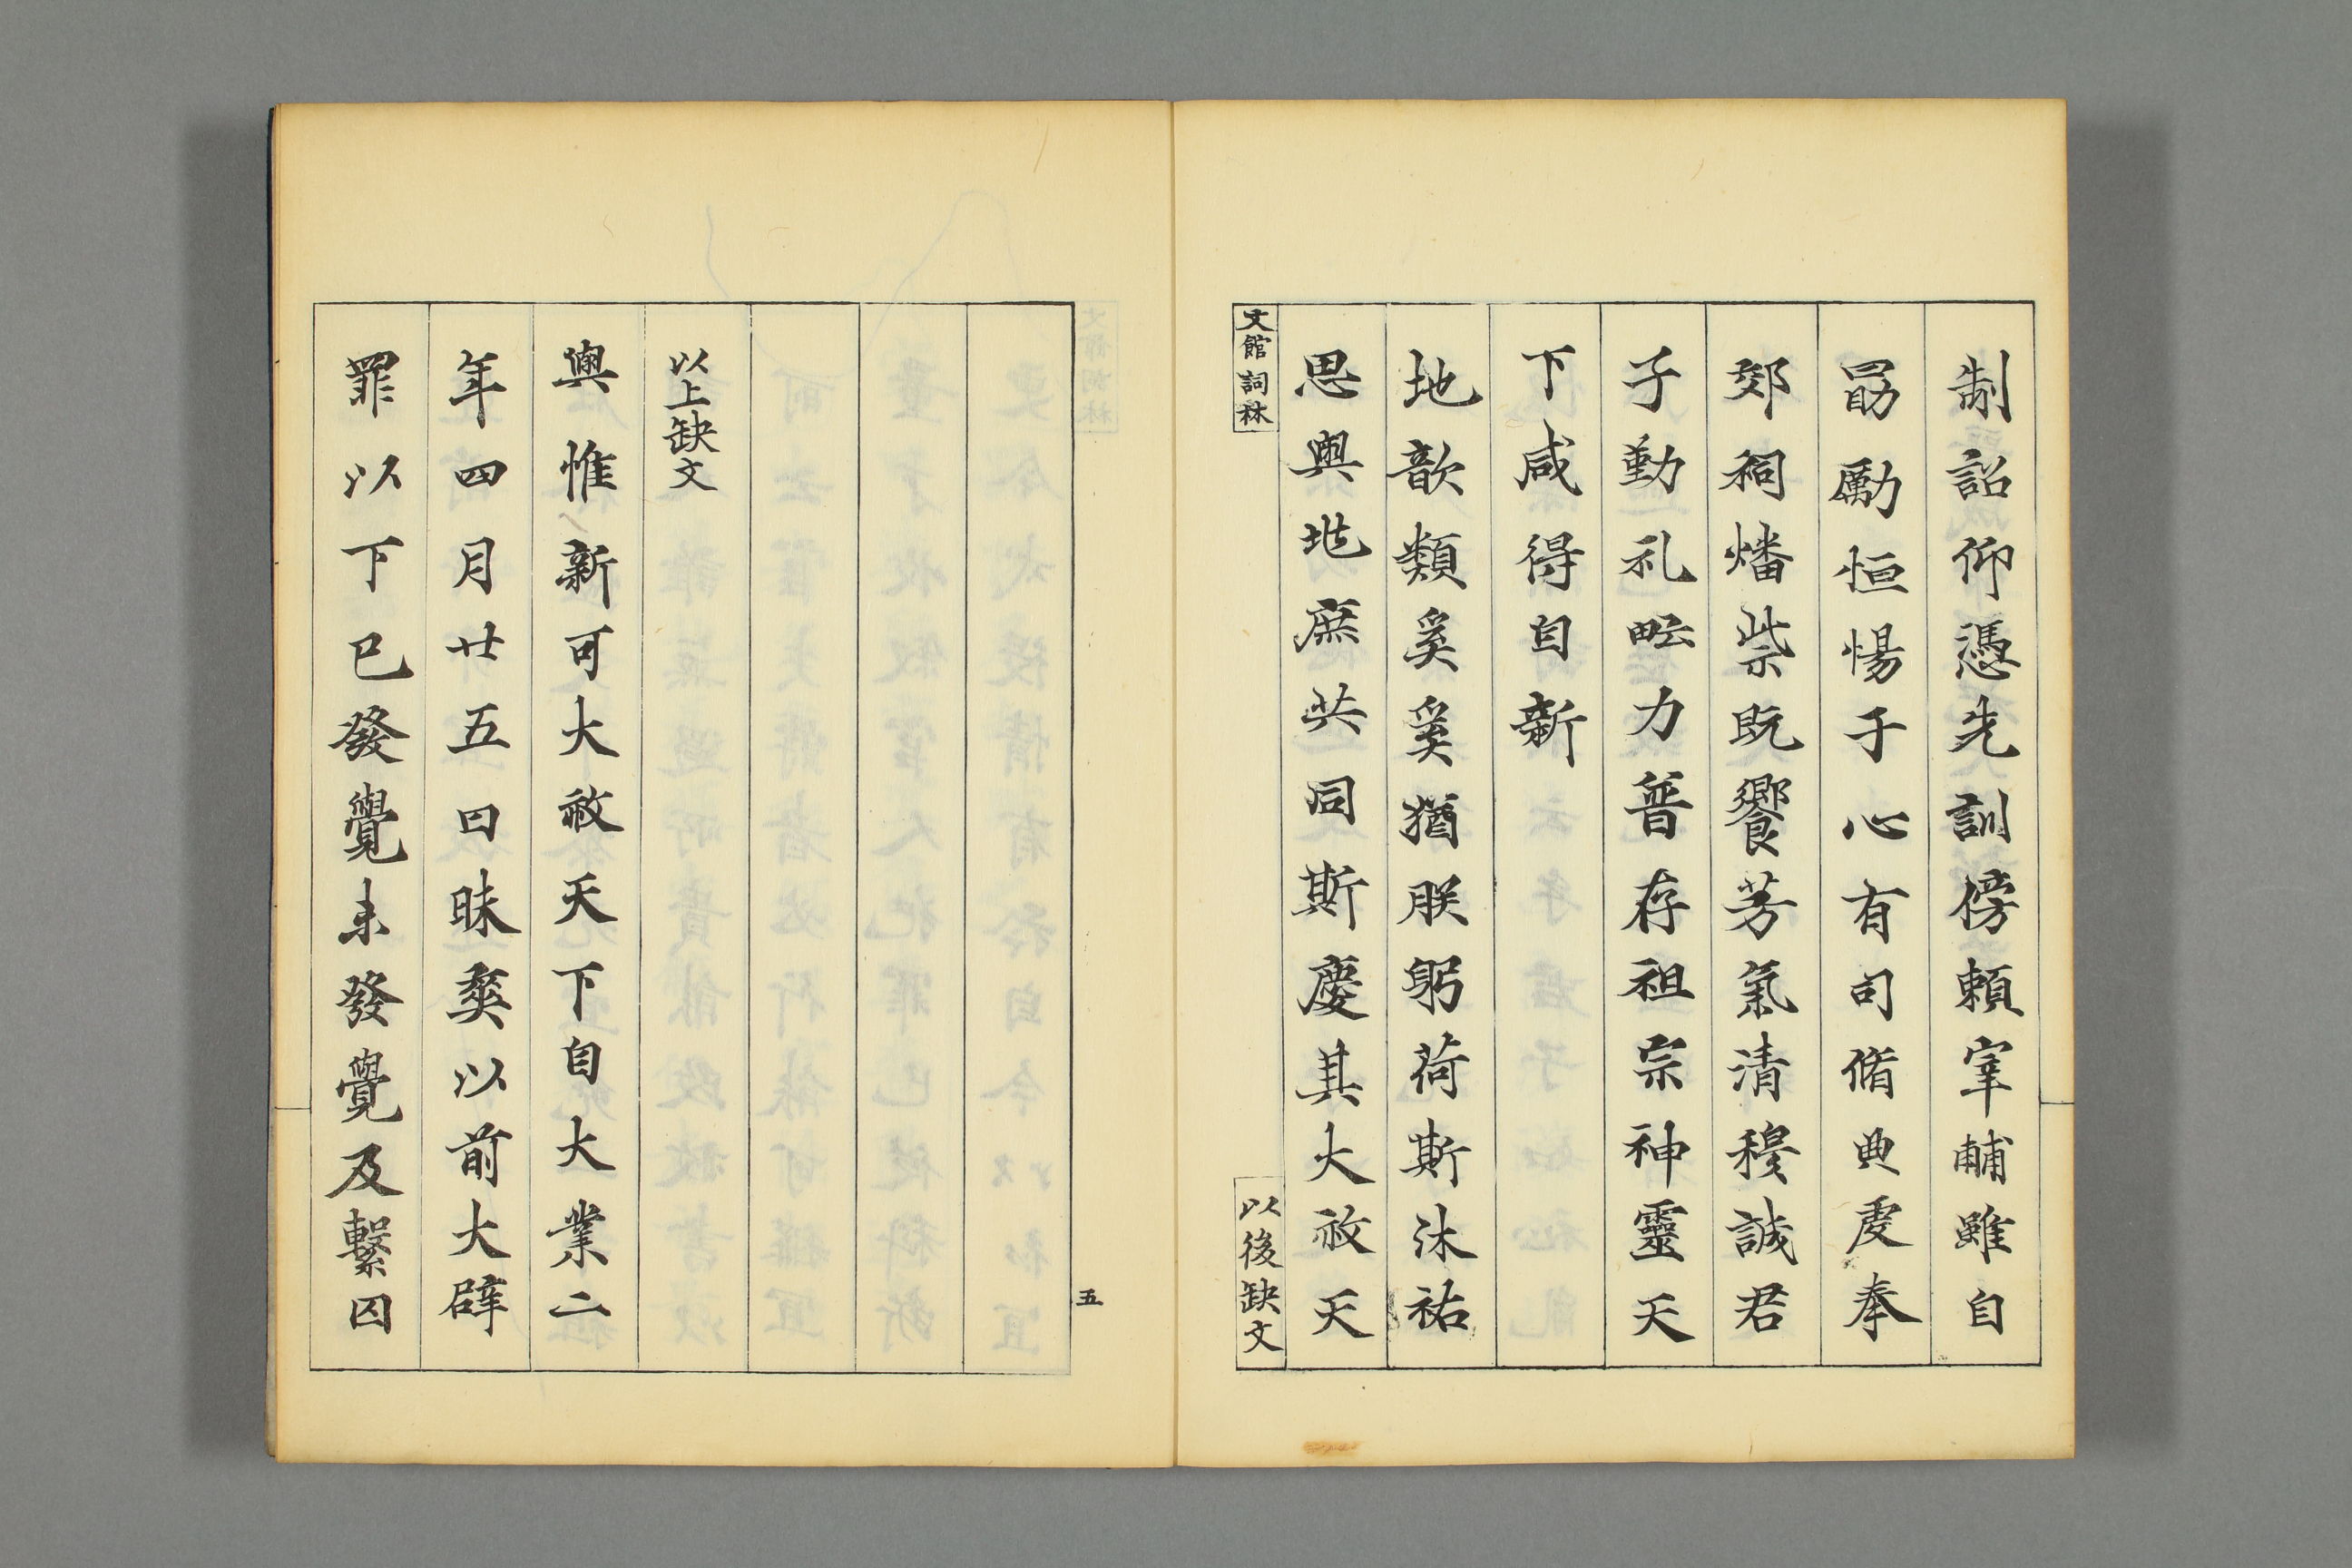 制詔仰憑先訓傍頼宰輔雖自
勗勵恒惕于心有司脩典虔奉
郊祠燔柴既饗芳氣清穆誠君
子勤礼畢力普存祖宗神靈天
下咸得自新
地歆類奚奚猶朕躬荷斯沐祐
思與兆庶共同斯慶其大赦天
文館詞林
以後缺文
五
以上缺文
輿惟新可大赦天下自大業二
年四月廿五日昧爽以前大辟
罪以下已發覺未發覺及繫囚